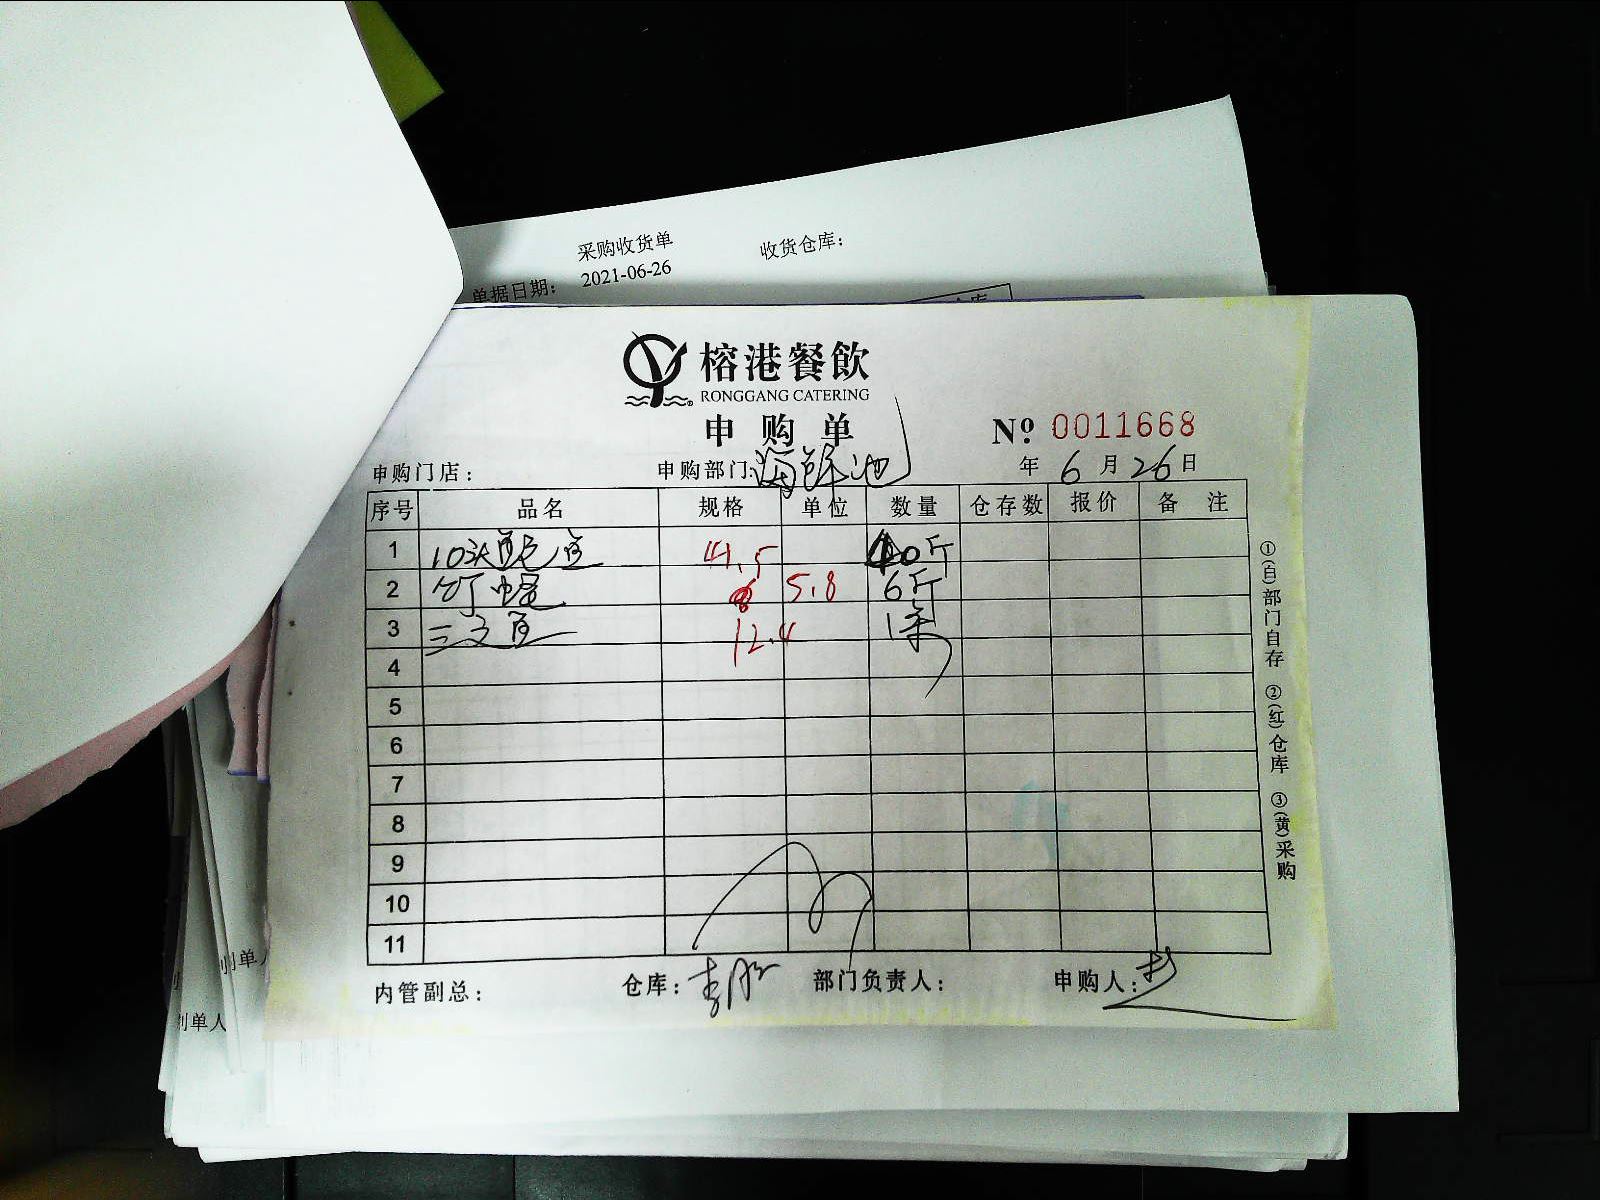 采购收货单
收货仓库：
单据日期： 2021-06-26
仓库
榕港餐飲
RONGGANG CATERING
申购单
Nº 0011668
申购门店： 申购部门：海鲜池 年 6 月 26 日
序号 品名 规格 单位 数量 仓存数 报价 备注
1 10头鲍鱼 41.5 40斤
2 竹虫呈 5.8 6斤
3 三文鱼 12.4 1条
4
5
6
7
8
9
10
11
①(白)部门自存 ②(红)仓库 ③(黄)采购
内管副总： 仓库： 部门负责人： 申购人：
制单人
制单人